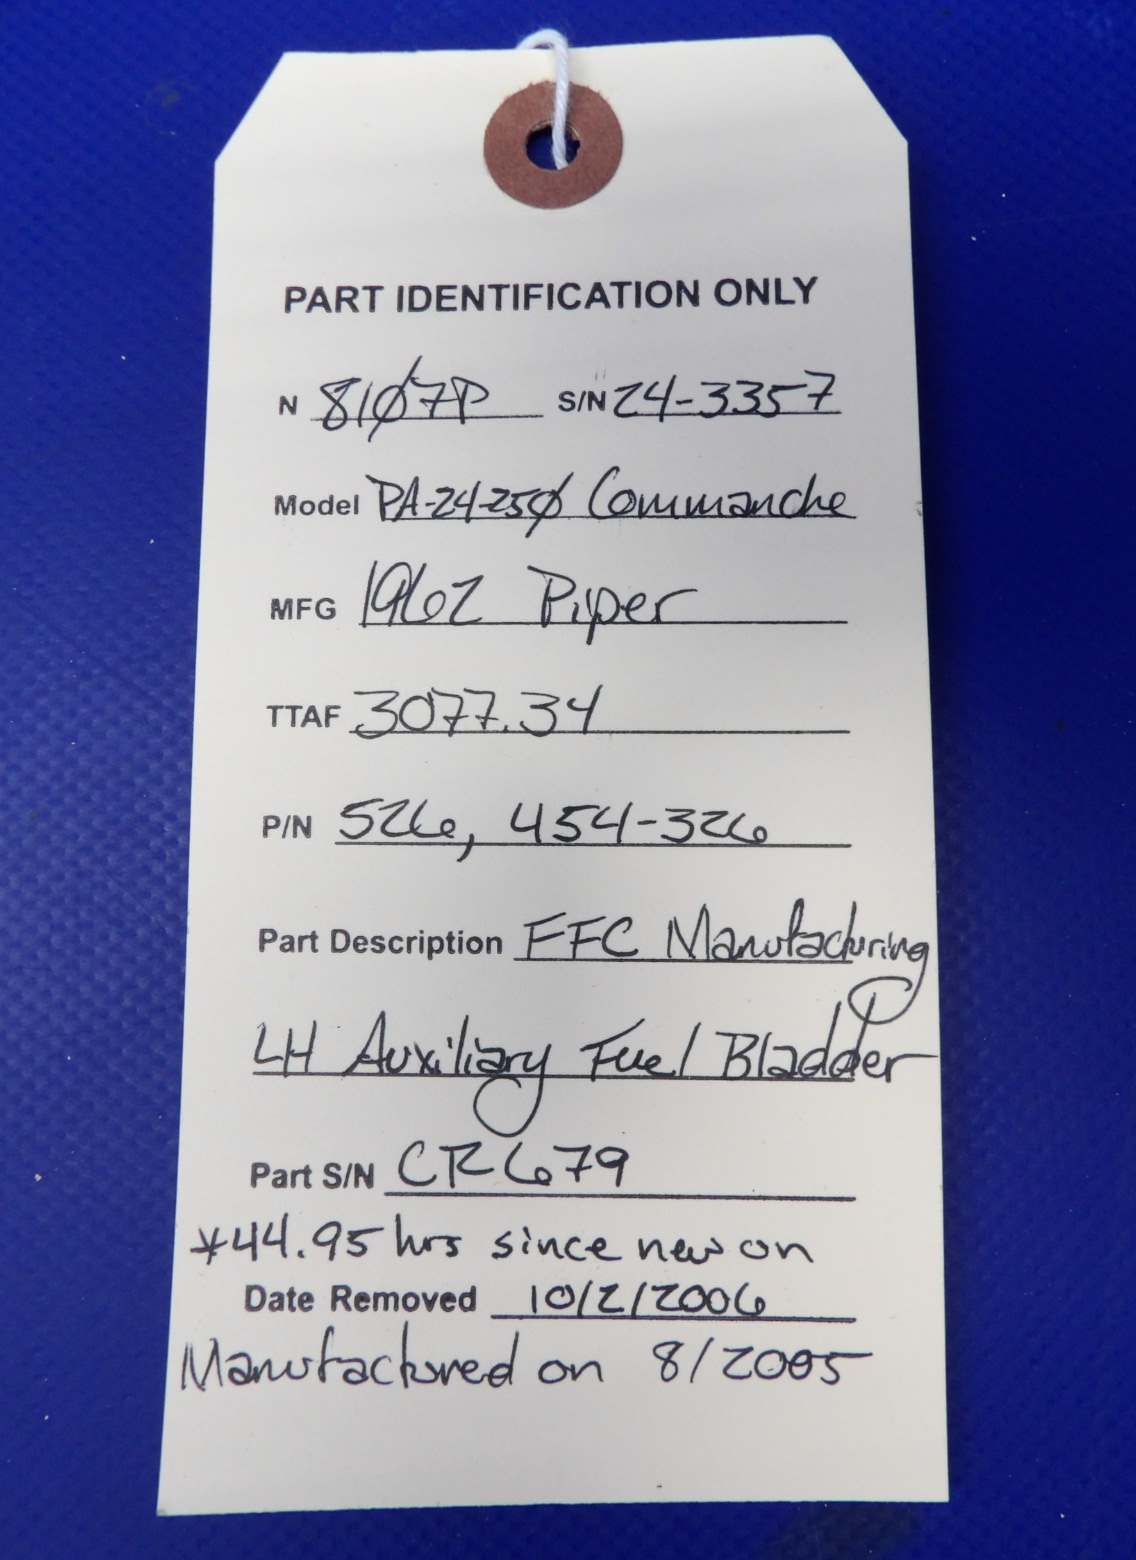 PART IDENTIFICATION ONLY
N 8107P S/N 24-3357
Model PA-24-250 Commanche
MFG 1962 Piper
TTAF 3077.34
P/N 526, 454-326
Part Description FFC Manufacturing
LH Auxiliary Fuel Bladder
Part S/N CR679
*44.95 hrs since new on
Date Removed 10/2/2006
Manufactured on 8/2005